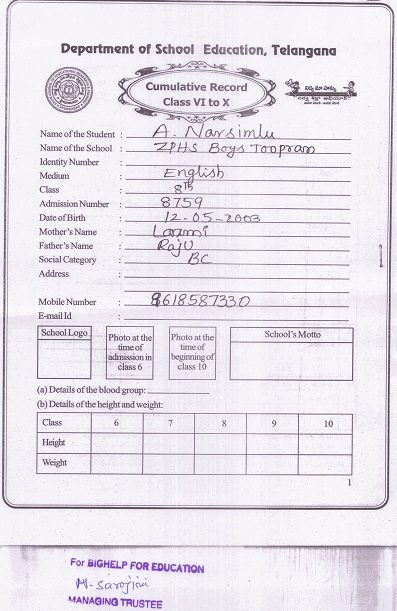 Department of School Education, Telangana
Cumulative Record
Class VI to X
Name of the Student : A. Narsimlu
Name of the School : ZPHS Boys Toopran
Identity Number :
Medium : English
Class : 8th
Admission Number : 8759
Date of Birth : 12-05-2003
Mother's Name : Laxmi
Father's Name : Raju
Social Category : BC
Address :
Mobile Number : 9618587330
E-mail Id :
School Logo
Photo at the time of admission in class 6
Photo at the time of beginning of class 10
School's Motto
(a) Details of the blood group:
(b) Details of the height and weight:
Class 6 7 8 9 10
Height
Weight
1
For BIGHELP FOR EDUCATION
M. Sarojini
MANAGING TRUSTEE